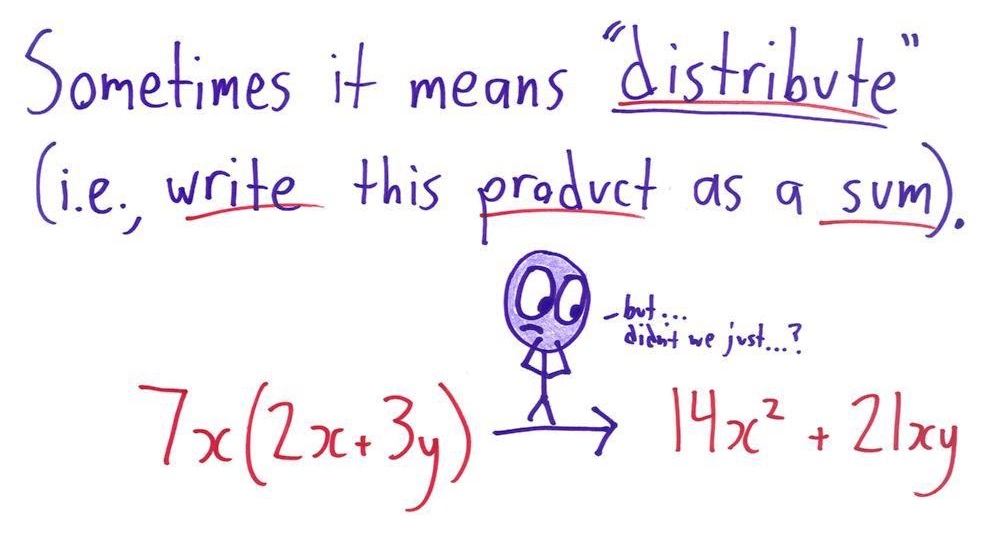 Sometimes it means "distribute"
(i.e., write this product as a sum).
- but...
didn't we just...?
7x(2x+3y) → 14x² + 21xy